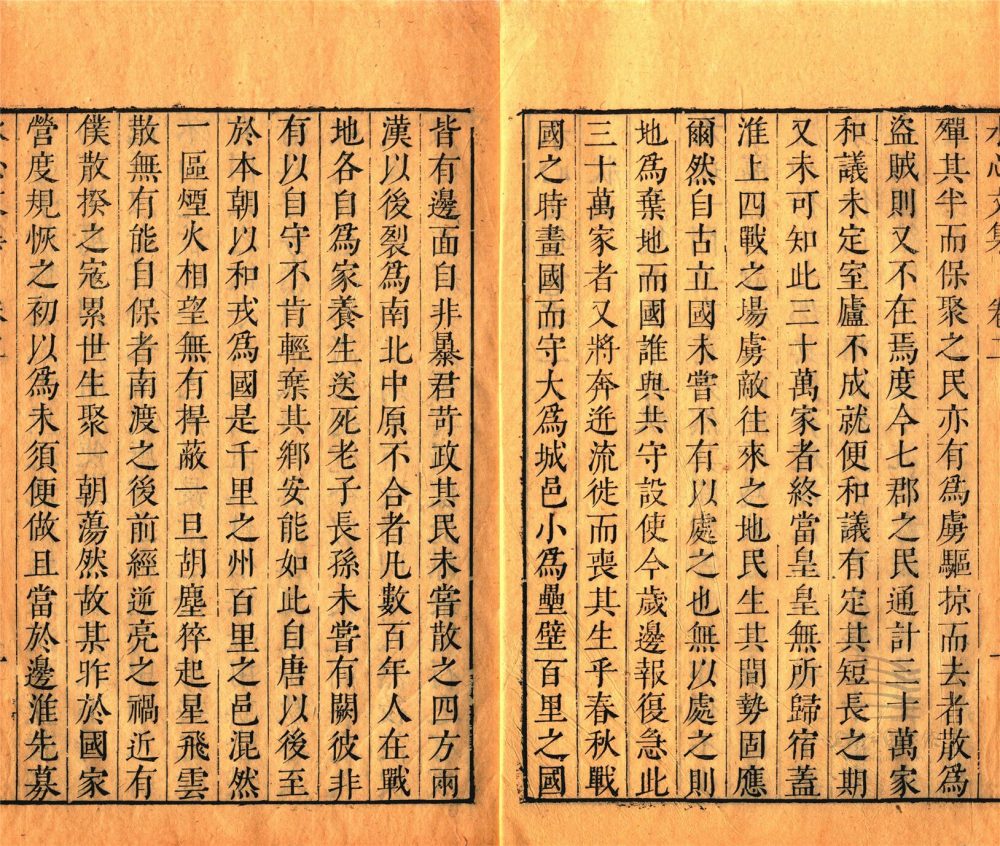 殫其半而保聚之民亦有爲虜驅掠而去者散爲
盜賊則又不在焉度今七郡之民通計三十萬家
和議未定室廬不成就便和議有定其短長之期
又未可知此三十萬家者終當皇皇無所歸宿蓋
淮上四戰之場虜敵往來之地民生其間勢固應
爾然自古立國未嘗不有以處之也無以處之則
地爲棄地而國誰與共守設使今歲邊報復急此
三十萬家者又將奔迸流徙而喪其生乎春秋戰
國之時畫國而守大爲城邑小爲壘壁百里之國
皆有邊面自非暴君苛政其民未嘗散之四方兩
漢以後裂爲南北中原不合者凡數百年人在戰
地各自爲家養生送死老子長孫未嘗有闕彼非
有以自守不肯輕棄其鄉安能如此自唐以後至
於本朝以和戎爲國是千里之州百里之邑混然
一區煙火相望無有捍蔽一旦胡塵猝起星飛雲
散無有能自保者南渡之後前經逆亮之禍近有
僕散揆之寇累世生聚一朝蕩然故某昨於國家
營度規恢之初以爲未須便做且當於邊淮先募